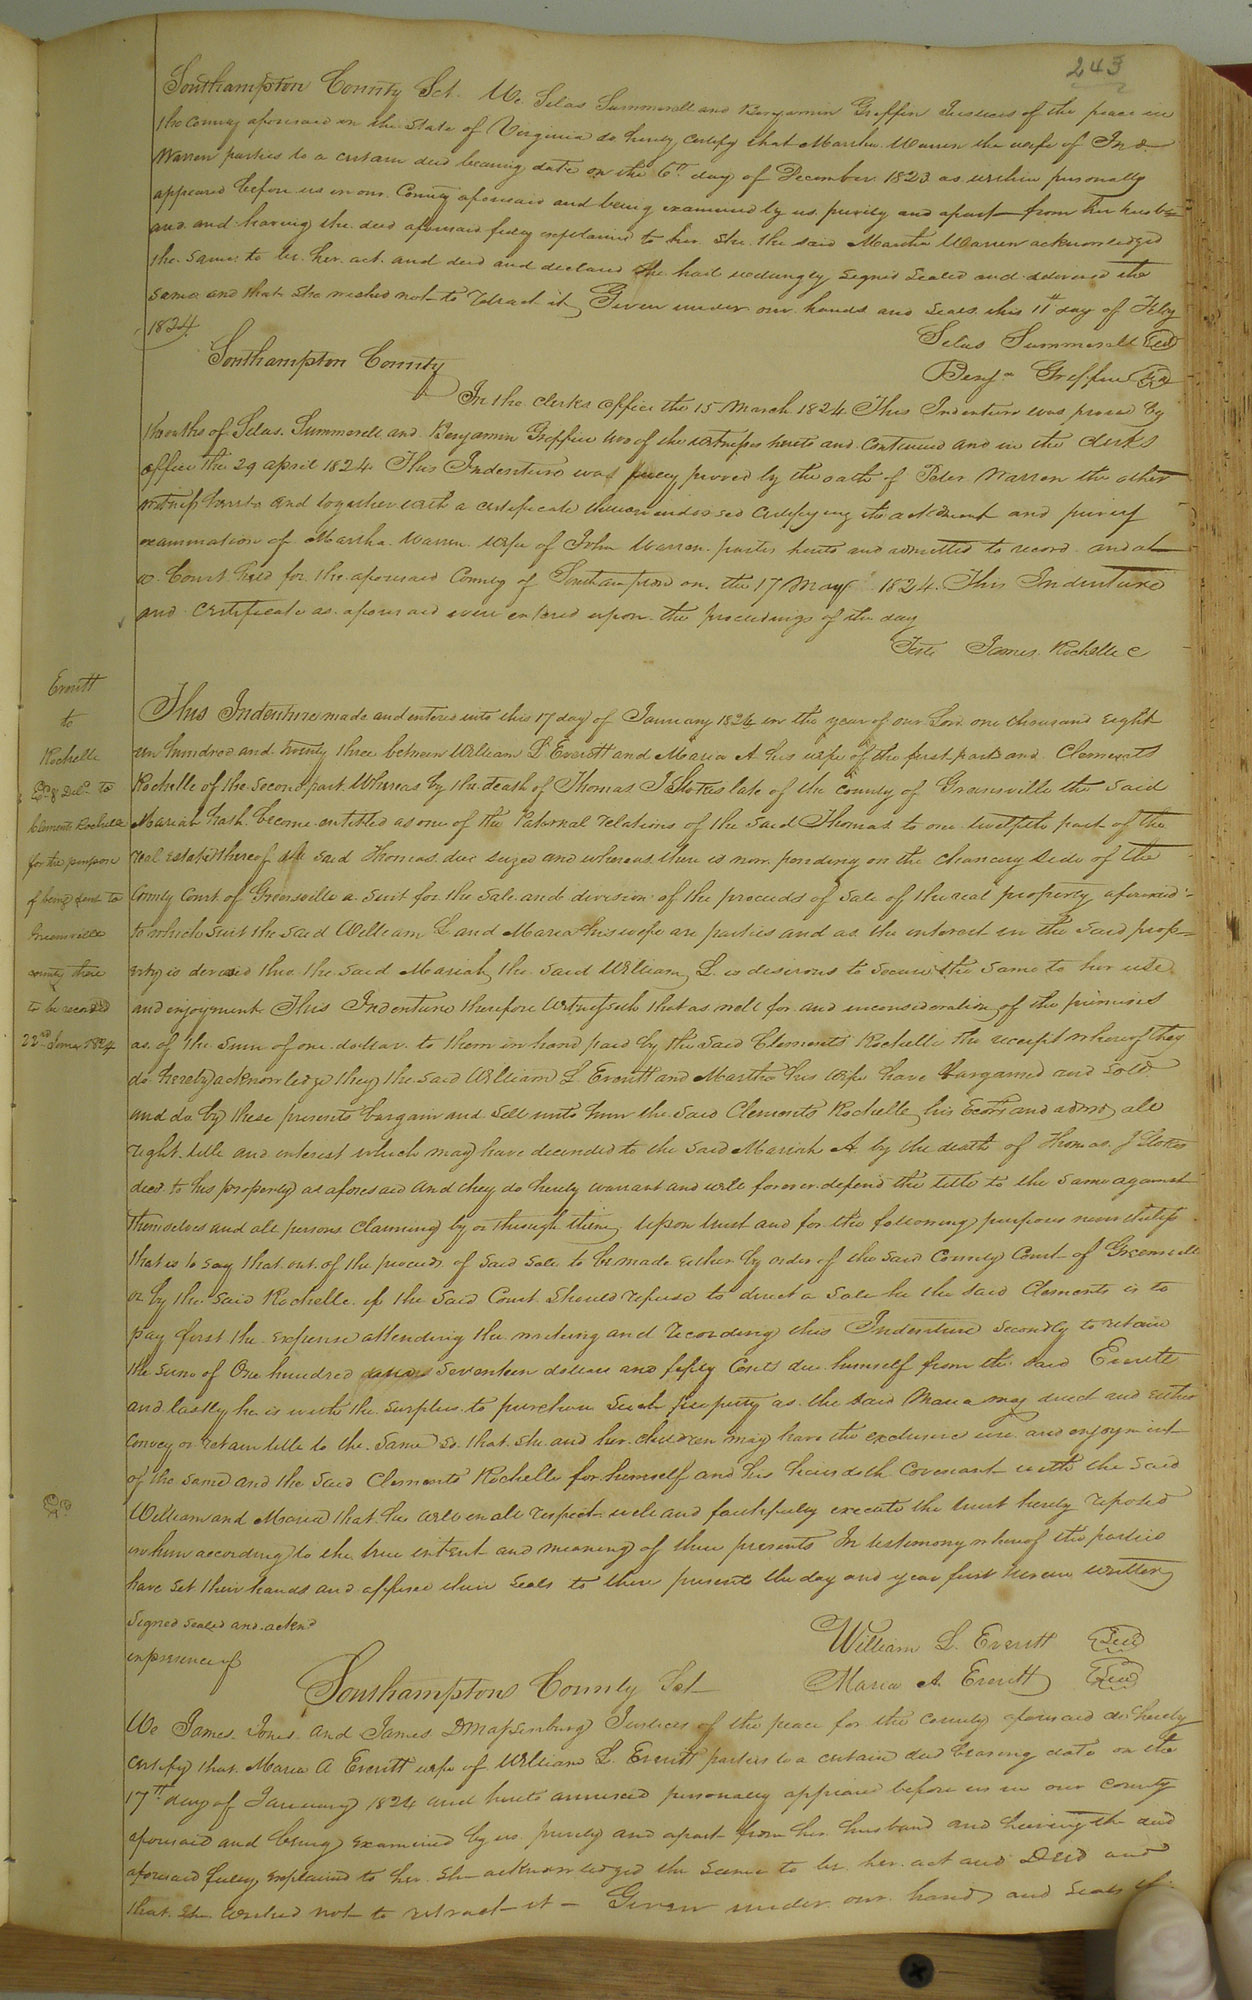 243
Southampton County Sct. We Silas Summerell and Benjamin Griffin Justices of the peace in
the County aforesaid in the State of Virginia do hereby certify that Martha Warren the wife of Jno
Warren parties to a certain deed bearing date on the 6th day of December 1823 as within personally
appeared before us in our County aforesaid and being examined by us privily and apart from her husb
and and having the deed aforesaid fully explained to her she the said Martha Warren acknowledged
the same to be her act and deed and declared she had willingly signed sealed and delivered the
same and that she wished not to retract it Given under our hands and seals this 11th day of Feby
1824
Silas Summerell Seal
Southampton County
Benjn Griffin Seal
In the clerks office the 15 March 1824 This Indenture was proved by
the oaths of Silas Summerell and Benjamin Griffin two of the witnesses hereto and continued and in the clerks
office the 29 april 1824 This Indenture was fully proved by the oath of Peter Warren the other
witness hereto and together with a certificate thereon indorsed certifying the acknment and privy
examination of Martha Warren wife of John Warren parties hereto and admitted to record and at
a Court held for the aforesaid County of Southampton on the 17 May 1824 This Indenture
and certificate as aforesaid were entered upon the proceedings of the day
Teste James Rochelle C
Everitt
to
Rochelle
Deld to
Clements Rochelle
for the purpose
of being sent to
Greensville
county there
to be recorded
22nd 1824
This Indenture made and entered into this 17 day of January 1824 in the year of our Lord one thousand eight
een hundred and twenty three between William L Everitt and Maria A his wife of the first part and Clements
Rochelle of the second part Whereas by the death of Thomas J Stokes late of the county of Greensville the said
Mariah hath become entitled as one of the Paternal relations of the said Thomas to one twelfth part of the
real estate thereof the said Thomas died seized and whereas there is now pending on the chancery side of the
County Court of Greensville a suit for the sale and division of the proceeds of sale of the real property aforesaid
to which suit the said William L and Maria his wife are parties and as the interest in the said prop=
erty is derived thro the said Mariah the said William L is desirous to secure the same to her use
and enjoyment This Indenture therefore witnesseth that as well for and inconsideration of the premises
as of the sum of one dollar to them in hand paid by the said Clements Rochelle the receipt whereof they
do hereby acknowledge they the said William L Everitt and Martha his wife have bargained and sold
and do by these presents bargain and sell unto him the said Clements Rochelle his Ecors and admrs all
right title and interest which may have decended to the said Mariah A by the death of Thomas J Stokes
decd to his property as aforesaid and they do hereby warrant and will forever defend the title to the same against
themselves and all persons claiming by or through them upon trust and for the following purposes
that is to say that out of the proceeds of said sale to be made either by order of the said County Court of Greensville
or by the said Rochelle if the said Court should refuse to direct a sale he the said Clements is to
pay first the expense attending the writing and recording this Indenture secondly to retain
the sum of One hundred seventeen dollars and fifty Cents due himself from the said Everitt
and lastly he is with the surplus to purchase such property as the said Maria may direct and either
convey or retain title to the same so that she and her children may have the exclusive use and enjoyment
of the same and the said Clements Rochelle for himself and his heirs doth covenant with the said
William and Maria that he will in all respects well and faithfully execute the trust hereby reposed
in him according to the true intent and meaning of these presents In testimony whereof the parties
have set their hands and affixed their seals to these presents the day and year first herein written
Signed sealed and acknd
in presence of
William L. Everitt Seal
Maria A. Everitt Seal
Southampton County Sct
We James Jones and James D Massenburg Justices of the peace for the county aforesaid do hereby
certify that Maria A Everitt wife of William L. Everitt parties to a certain deed bearing date on the
17th day of January 1824 and hereto annexed personally appeared before us in our county
aforesaid and being examined by us privily and apart from her husband and having the deed
aforesaid fully explained to her she acknowledged the same to be her act and Deed and
that she wished not to retract it - Given under our hands and seals